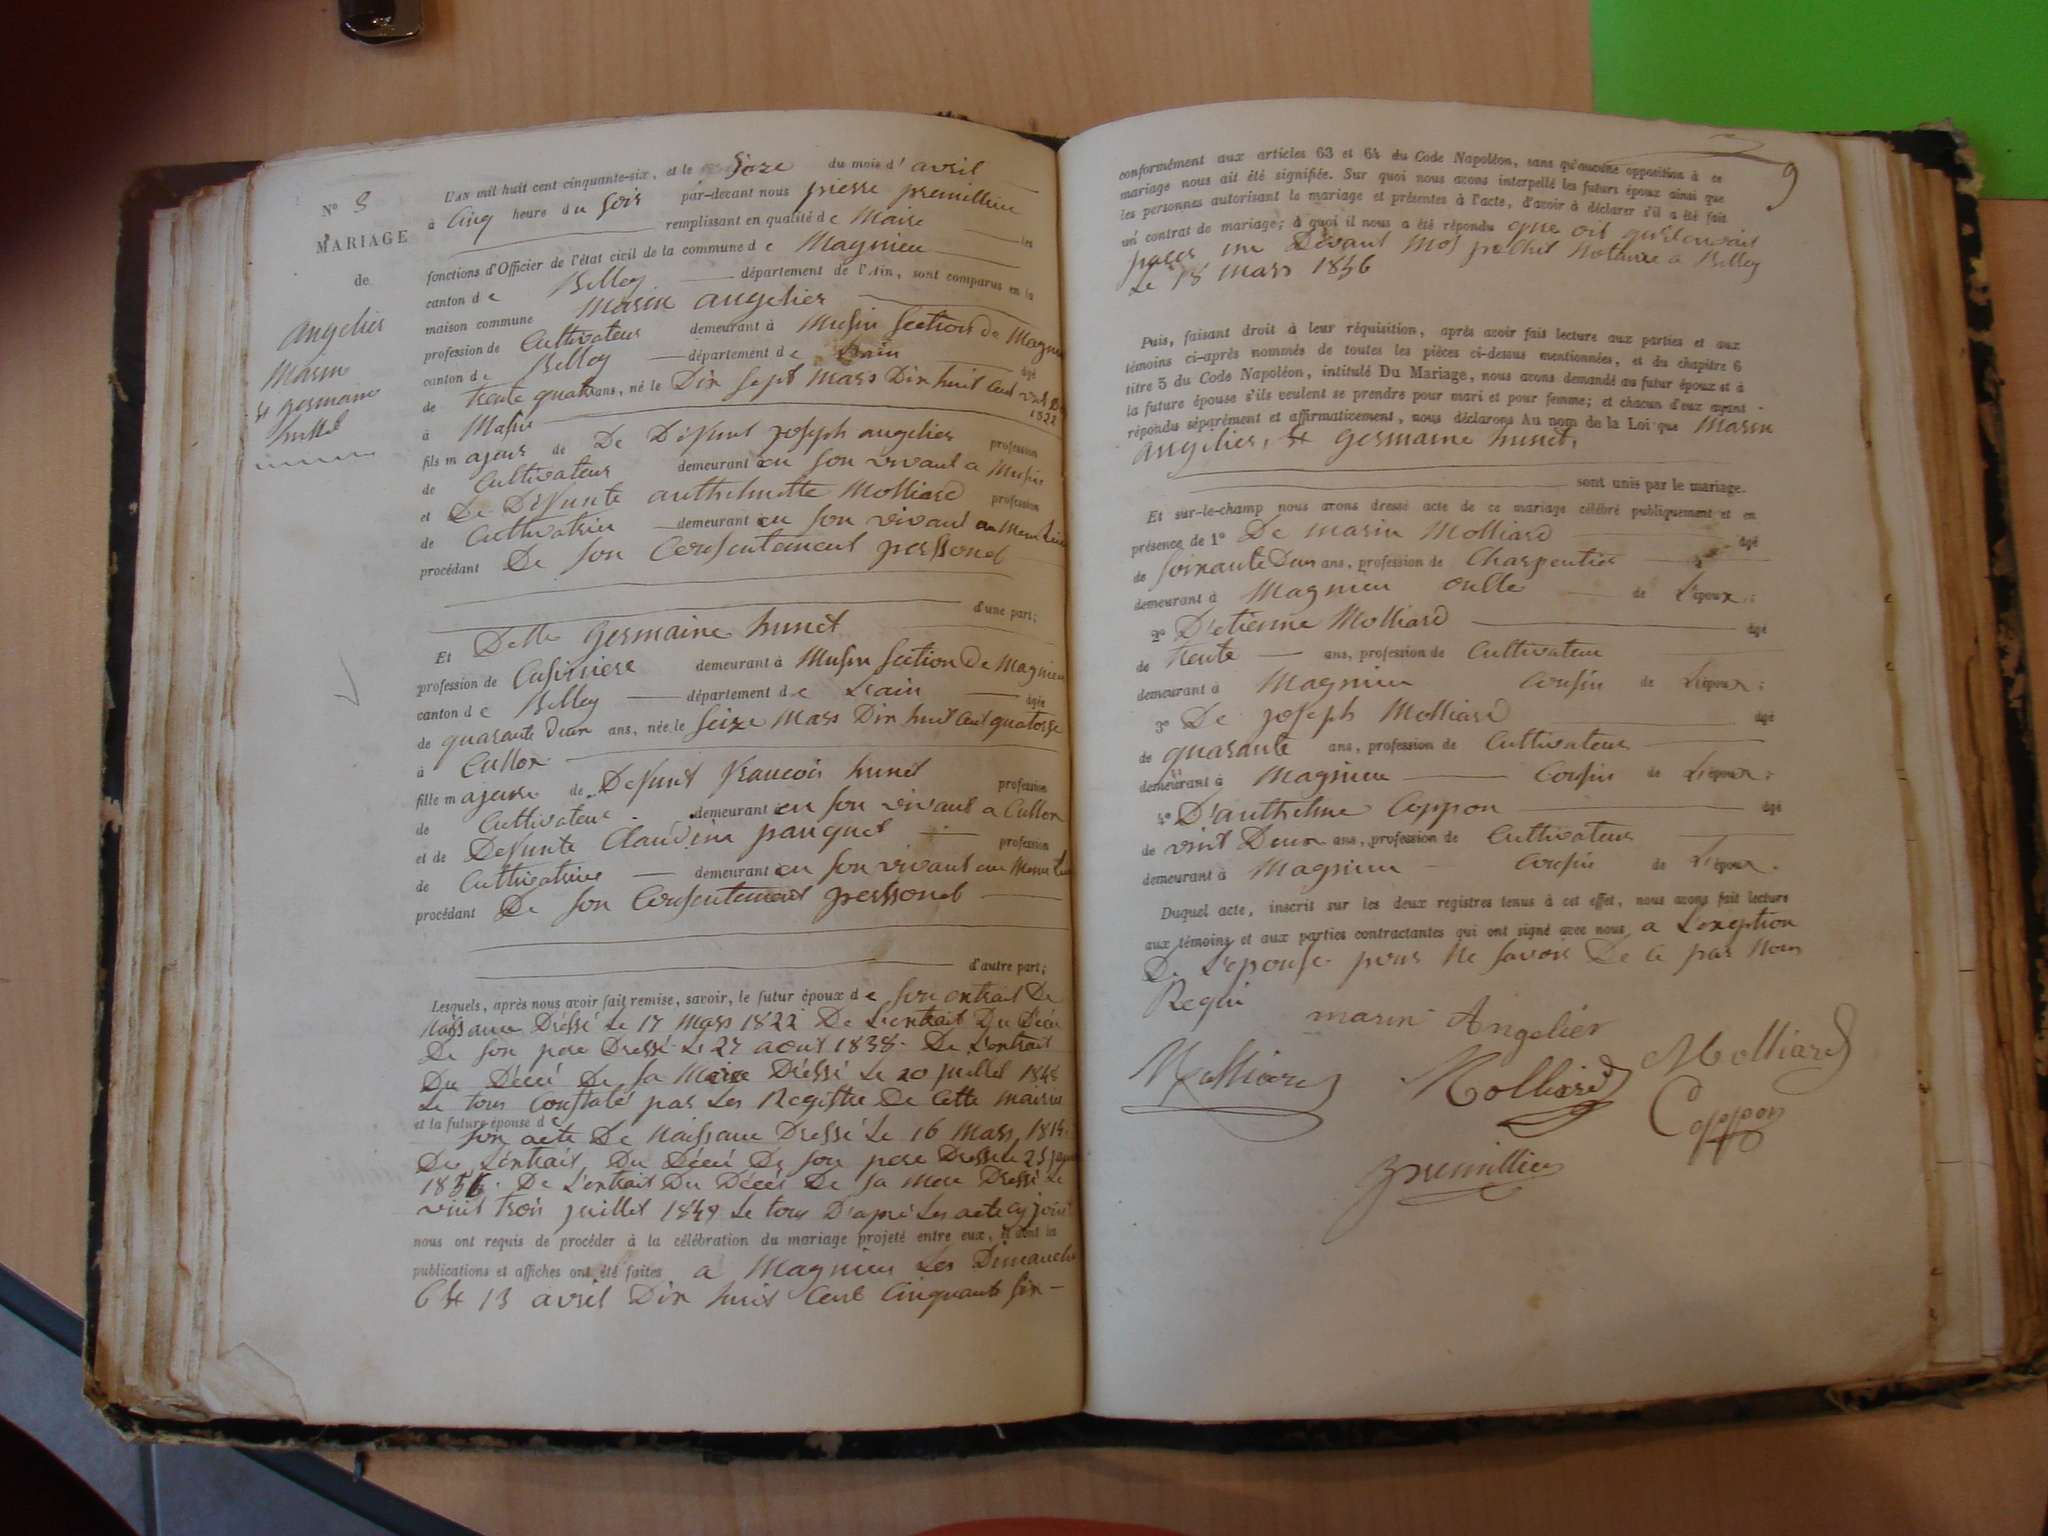 N° 8
MARIAGE
de
angelier
Marin
et germaine
hunet
L'AN mil huit cent cinquante-six, et le Seze du mois d' avril
à Cinq heure du soir par-devant nous pierre premillieu
remplissant en qualité de Maire les
fonctions d'Officier de l'état civil de la commune de Magnieu
canton de Belley département de l'Ain, sont comparus en la
maison commune Marin angelier
profession de Cultivateur demeurant à Musin Section de Magnieu
canton de Belley département de Lain âgé
de trente quatre ans, né le Dix sept mars Dix huit cent vint Deux
1822
à Musin
fils majeur de De Défunt joseph angelier profession
de Cultivateur demeurant en son vivant a Musin
et De Défunte anthelmette Molliard profession
de Cultivatrice demeurant en son vivant au Meme Lieu
procédant De son Consentement personel
d'une part;
Et Delle germaine hunet
profession de Cusiniere demeurant à Musin Section De Magnieu
canton de Belley département de Lain âgée
de quarante Deux ans, née le Seize Mars Dix huit Cent quatorze
à Cullon
fille majeure de Defunt francois hunet profession
de Cultivateur demeurant en son vivant a Cullon
et de Defunte Claudine panquet profession
de Cultivatrice demeurant en son vivant au Meme Lieu
procédant De son Consentement personel
d'autre part;
Lesquels, après nous avoir fait remise, savoir, le futur époux de son extrait De
Naissance Dréssé Le 17 Mars 1822 De L'extrait Du Décé
De son pere Dressé Le 27 aout 1838 De L'extrait
Du Décé De sa Mère Dréssé Le 20 juillet 1848
Le tous constaté par Les Registre De Cette mairie
et la future épouse de
son acte De Naissance Dressé Le 16 Mars 1814
De L'extrait Du Décé De son pere Dresse Le 25
1856 De L'extrait Du Décés De sa Mere Dressé Le
vint trois juillet 1849 Le tous D'apré Les acte cy joint
nous ont requis de procéder à la célébration du mariage projeté entre eux, et dont les
publications et affiches ont été faites a Magnieu Les Dimanche
6 et 13 avril Dix huit Cent Cinquante Six
9
conformément aux articles 63 et 64 du Code Napoléon, sans qu'aucune opposition à ce
mariage nous ait été signifiée. Sur quoi nous avons interpellé les futurs époux ainsi que
les personnes autorisant le mariage et présentes à l'acte, d'avoir à déclarer s'il a été fait
un contrat de mariage; à quoi il nous a été répondu que oui qu'il ont
passés un Devant Mos Notaire a Belley
Le 18 mars 1856
Puis, faisant droit à leur réquisition, après avoir fait lecture aux parties et aux
témoins ci-après nommés de toutes les pièces ci-dessus mentionnées, et du chapitre 6
titre 5 du Code Napoléon, intitulé Du Mariage, nous avons demandé au futur époux et à
la future épouse s'ils veulent se prendre pour mari et pour femme; et chacun d'eux ayant
répondu séparément et affirmativement, nous déclarons Au nom de la Loi que Marin
angelier, et germaine hunet,
sont unis par le mariage.
Et sur-le-champ nous avons dressé acte de ce mariage célébré publiquement et en
présence de 1° De marin Molliard âgé
de soixante Deux ans, profession de Charpentier
demeurant à Magnieu oncle de L'époux;
2° D'etienne Molliard âgé
de trente ans, profession de Cultivateur
demeurant à Magnieu Cousin de L'époux;
3° De joseph Molliard âgé
de quarante ans, profession de Cultivateur
demeurant à Magnieu Cousin de L'époux;
4° D'anthelme Coppon âgé
de vint Deux ans, profession de Cultivateur
demeurant à Magnieu Cousin de L'époux.
Duquel acte, inscrit sur les deux registres tenus à cet effet, nous avons fait lecture
aux témoins et aux parties contractantes qui ont signé avec nous a L'exeption
De L'epouse pour Ne savoir De ce par Nous
Requi
marin Angelier
Molliard Molliard Molliard
Coppon
premillieu